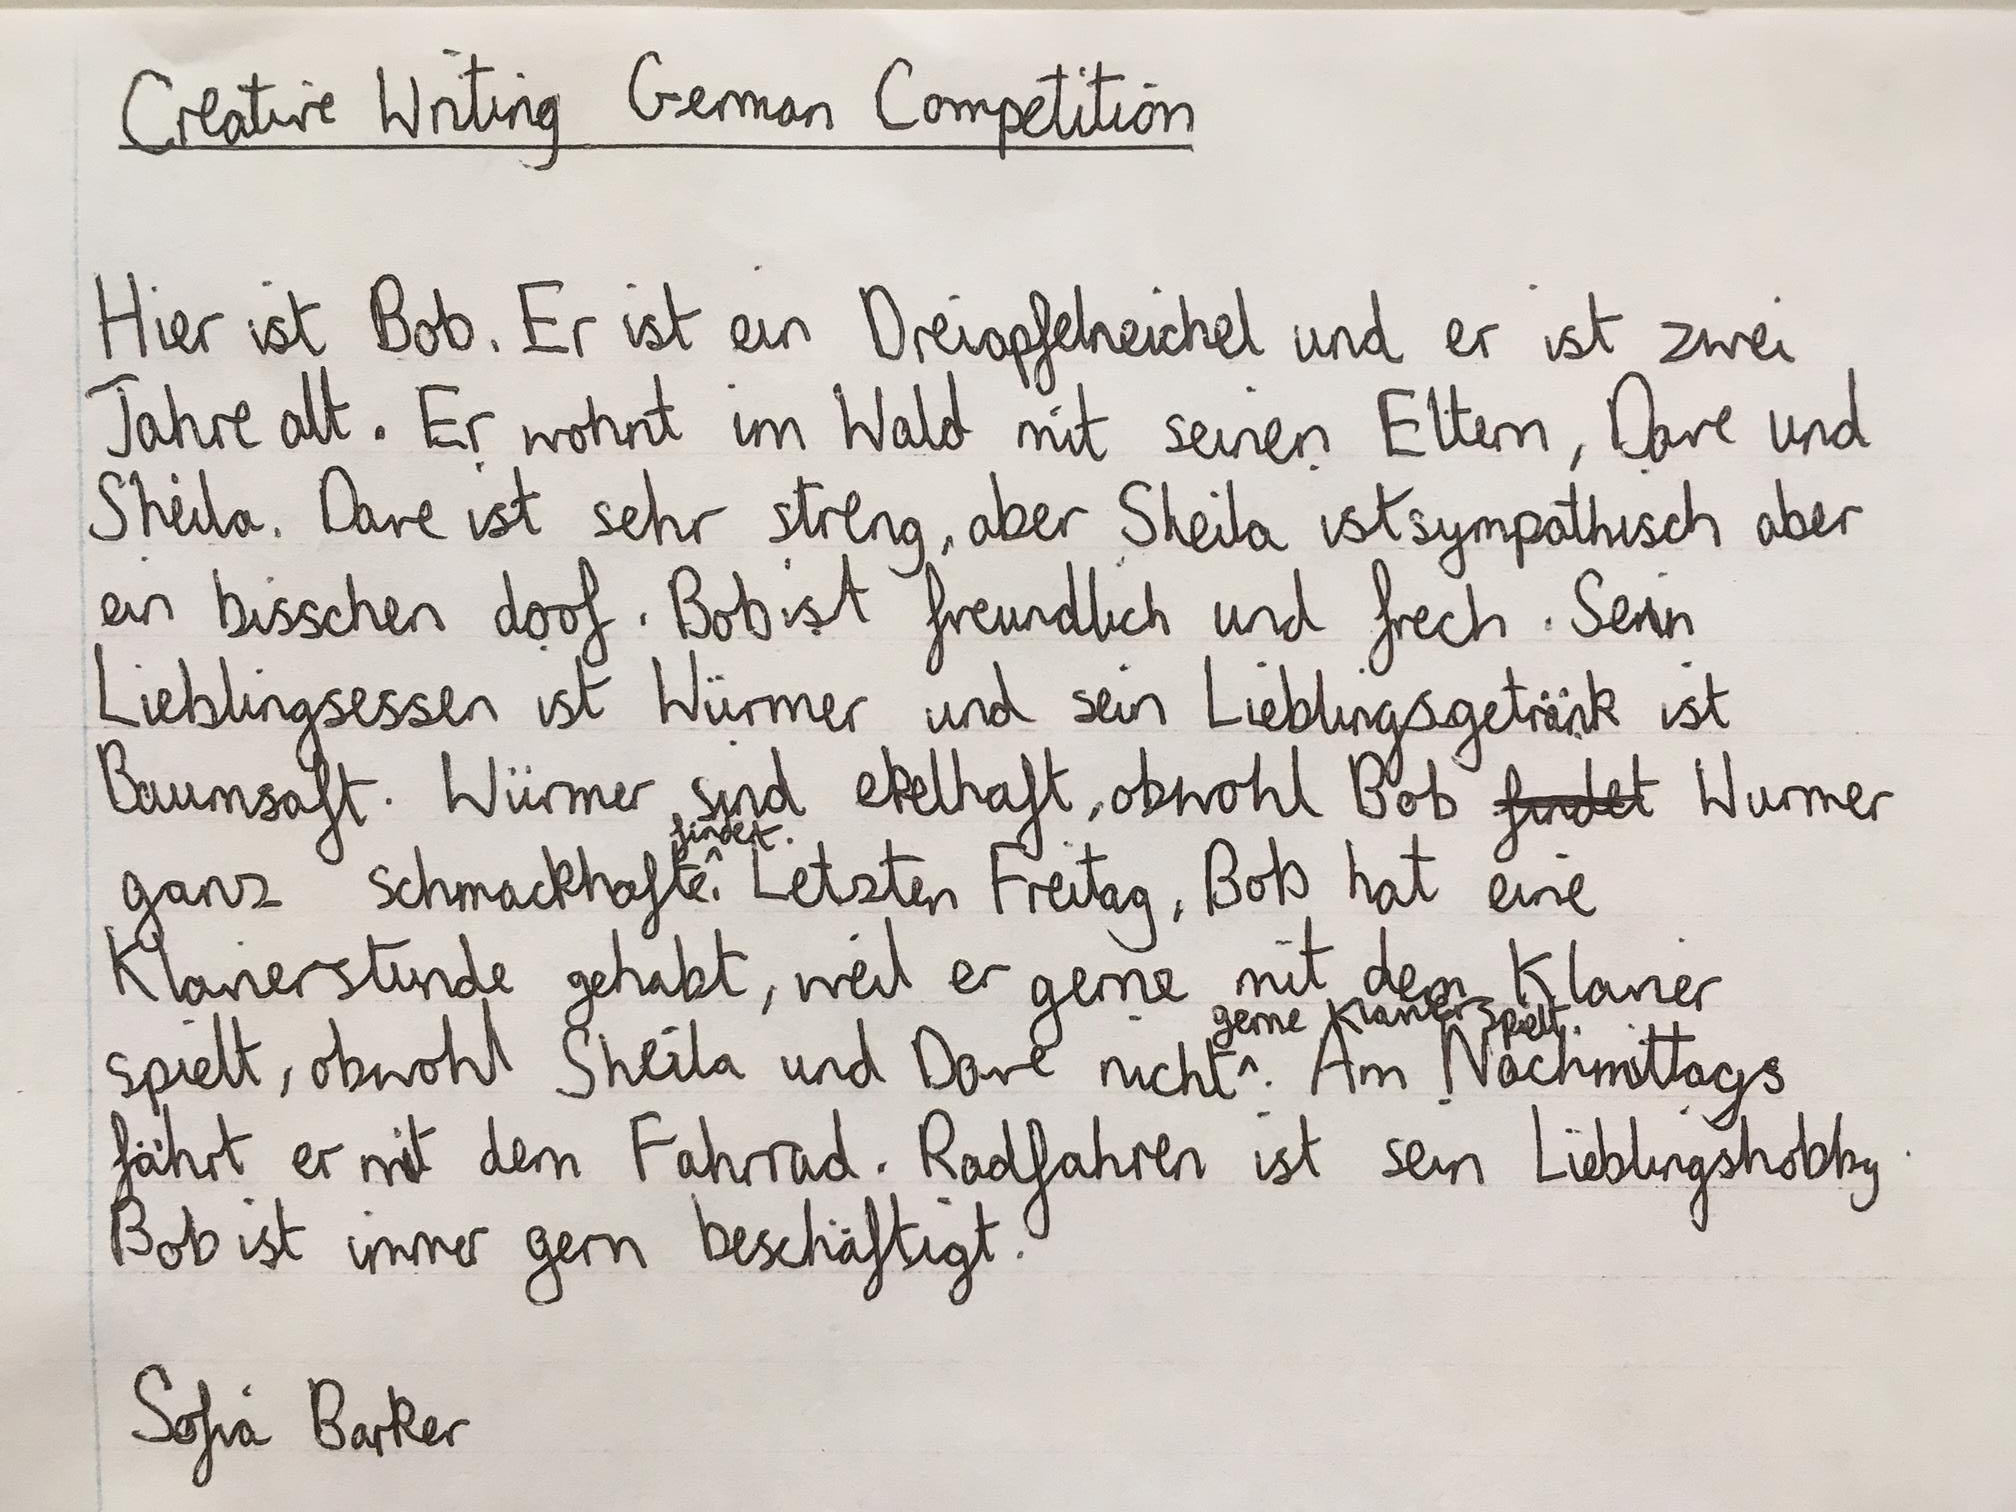 Creative Writing German Competition
Hier ist Bob. Er ist ein Dreiapfelneichel und er ist zwei
Jahre alt. Er wohnt im Wald mit seinen Eltern, Dave und
Sheila. Dave ist sehr streng, aber Sheila ist sympathisch aber
ein bisschen doof. Bob ist freundlich und frech. Sein
Lieblingsessen ist Würmer und sein Lieblingsgetränk ist
Baumsaft. Würmer sind ekelhaft, obwohl Bob findet Wurmer
findet.
ganz schmackhafte. Letzten Freitag, Bob hat eine
Klavierstunde gehabt, weil er gerne mit dem Klavier
gerne Klavier spielt.
spielt, obwohl Sheila und Dave nicht^. Am Nachmittags
fährt er mit dem Fahrrad. Radfahren ist sein Lieblingshobby.
Bob ist immer gern beschäftigt.
Sofia Barker